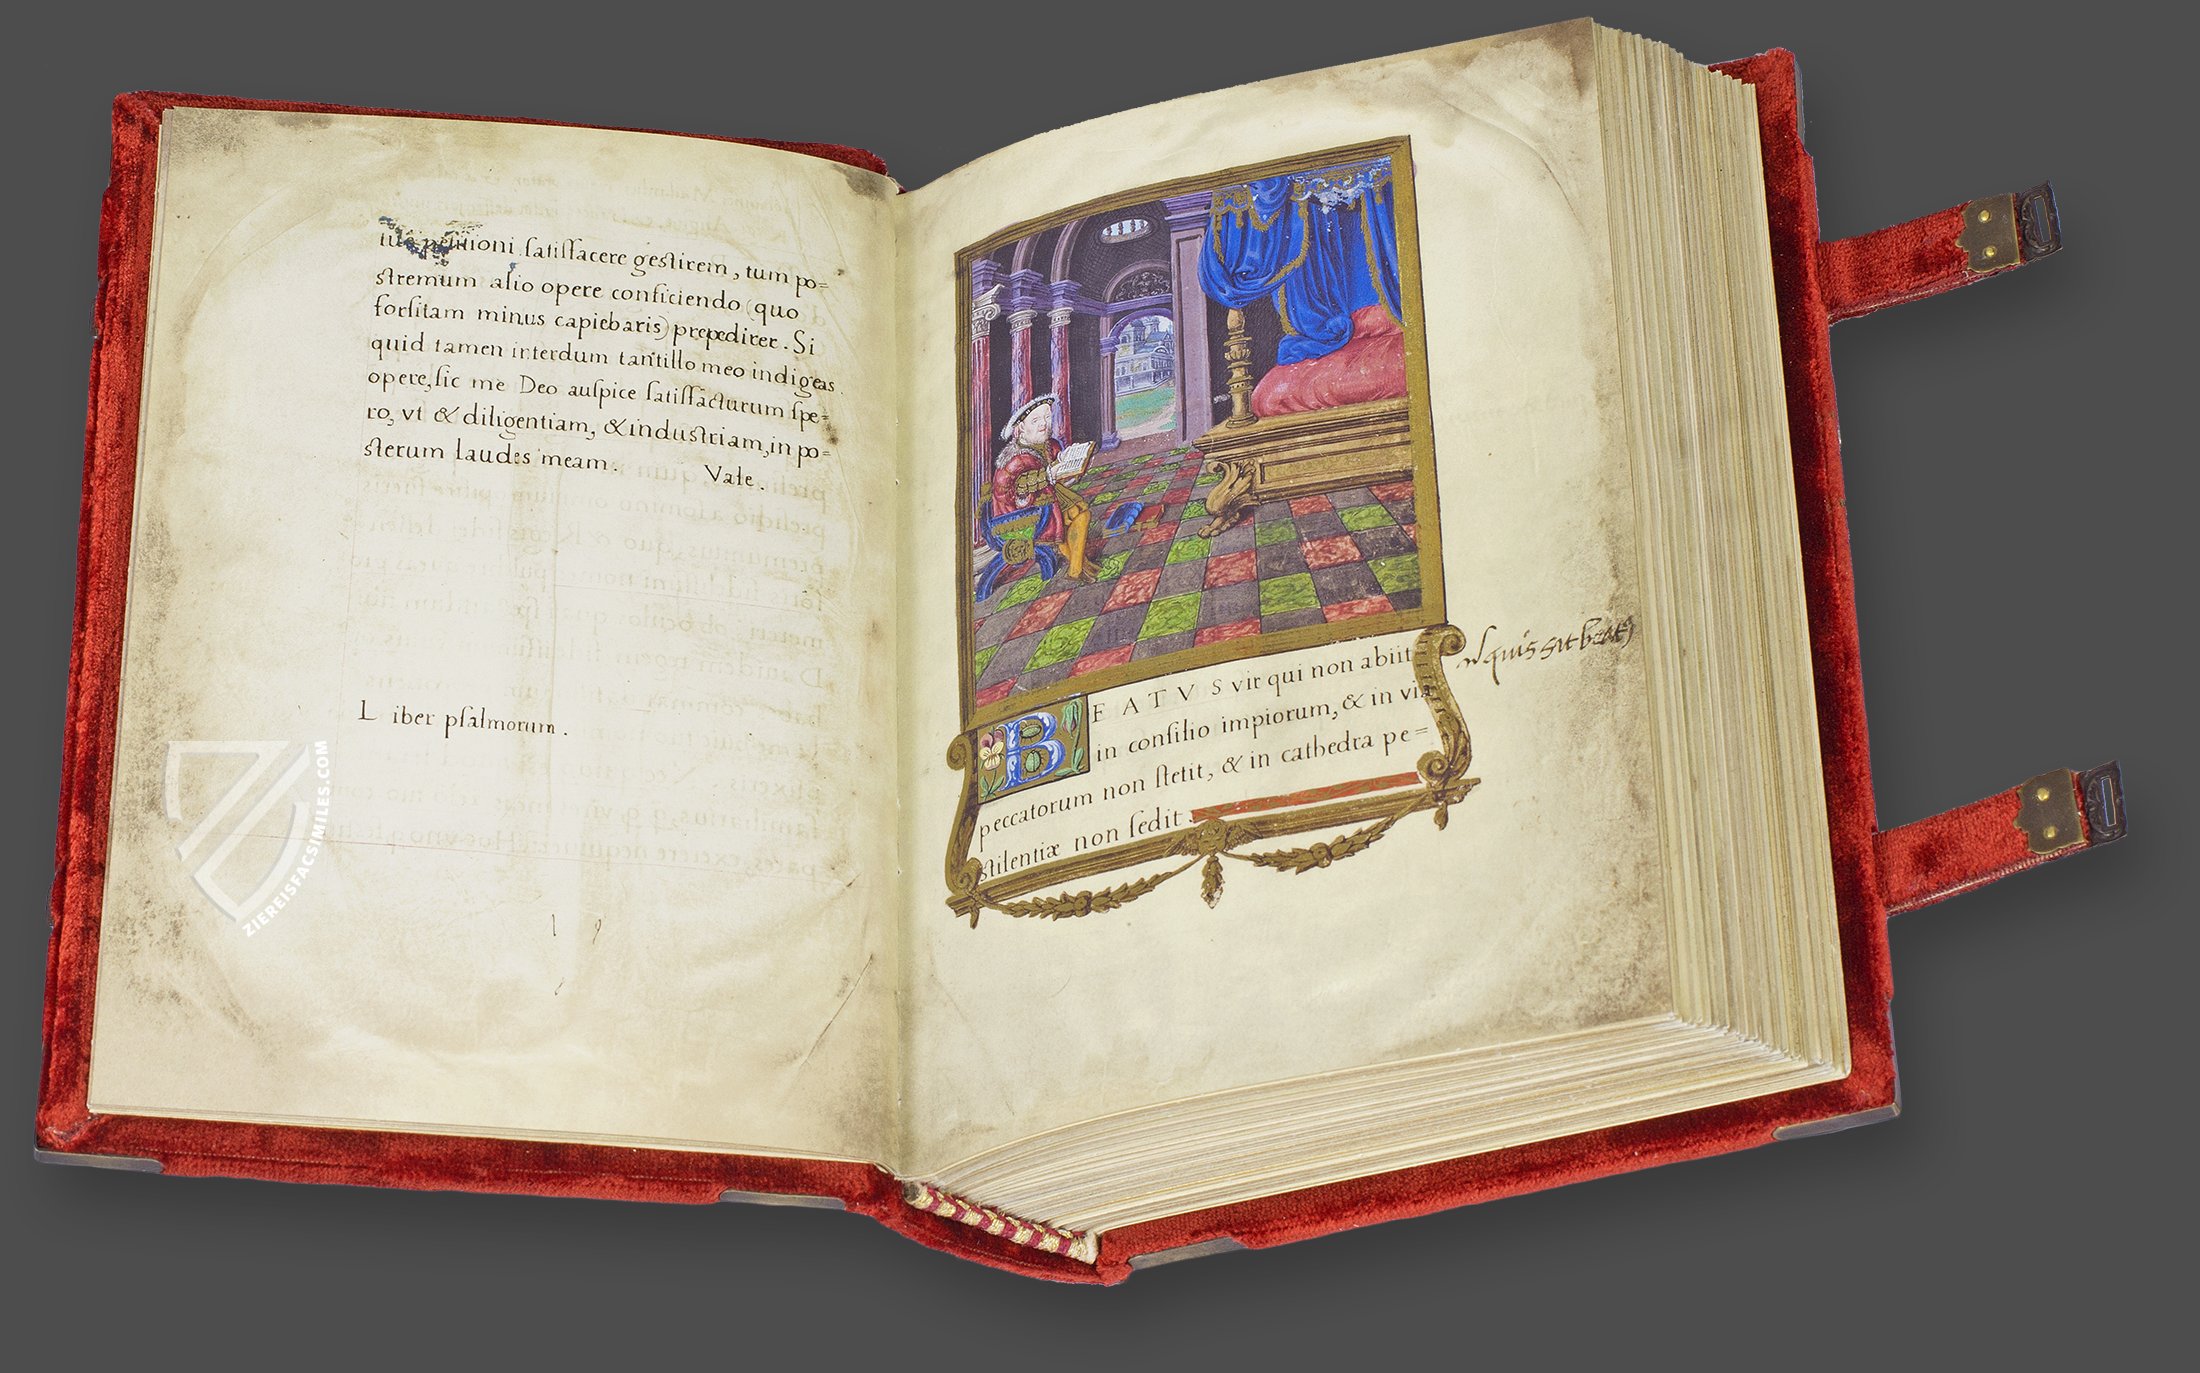 petitioni ſatiſfacere geſtirem, tum po=
ſtremum alio opere conficiendo (quo
forſitam minus capiebaris) prepedirer. Si
quid tamen interdum tantillo meo indigeas
opere, ſic me Deo auſpice ſatiſfacturum ſpe=
ro, vt & diligentiam, & induſtriam, in po=
ſterum laudes meam. Vale.
Liber pſalmorum.
BEATVS vir qui non abiit
in conſilio impiorum, & in via
peccatorum non ſtetit, & in cathedra pe=
ſtilentiæ non ſedit.
quis sit beatꝰ
ZIEREISFACSIMILES.COM